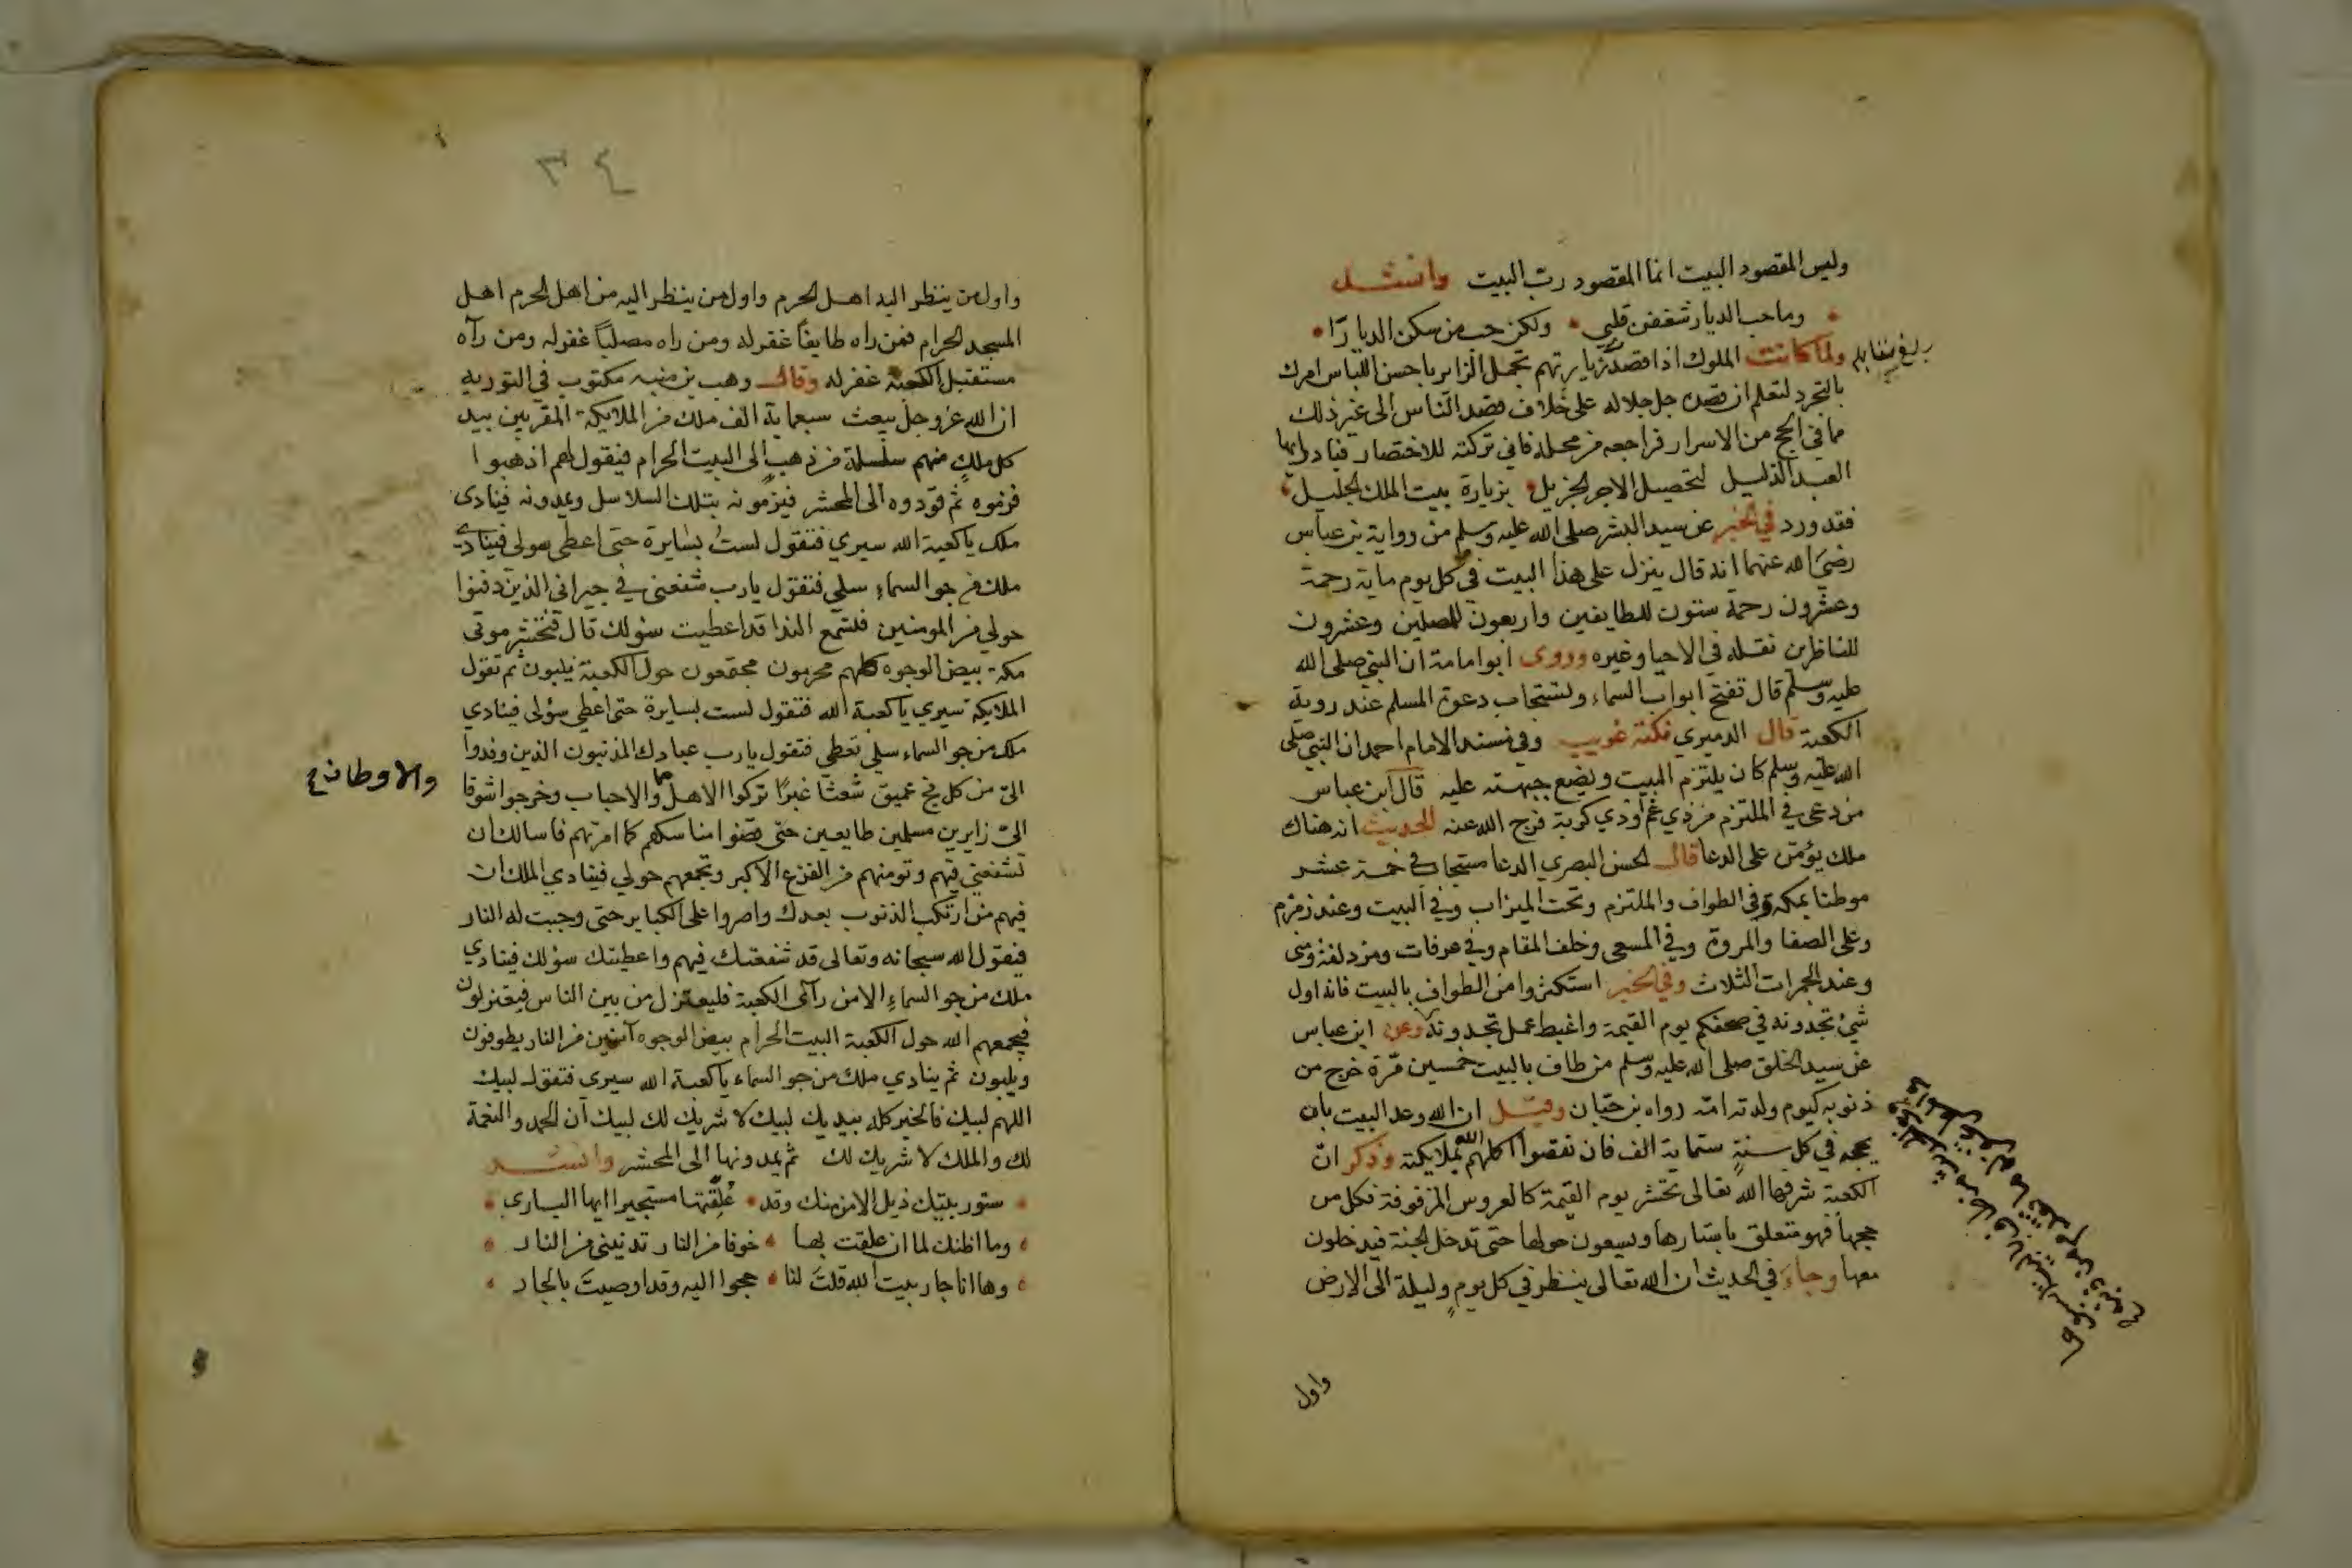 وليس المقصود البيت انما المقصود ربّ البيت وانشد
وما حب الديار شغفن قلبي ولكن حب من سكن الديارَا
ولما كانت الملوك اذا قصد زيارتهم تجمل الزاير باحسن اللباس امرك
بالتجرد لتعلم ان قصده جل جلاله على خلاف قصد الناس الى غير ذلك
مما في الحج من الاسرار فراجعه من محله فاني تركته للاختصار فبادر ايها
العبد الذليل لتحصيل الاجر الجزيل بزيارة بيت الملك الجليل
فقد ورد في الخبر عن سيد البشر صلى الله عليه وسلم من رواية بن عباس
رضيَ الله عنهما انه قال ينزل على هذا البيت في كل يوم ماية رحمة
وعشرون رحمة ستون للطايفين واربعون للمصلين وعشرون
للناظرين نقله في الاحيا وغيره وروى ابو امامة ان النبي صلى الله
عليه وسلم قال تفتح ابواب السماء وتستجاب دعوة المسلم عند روية
الكعبة قال الدميري نكتة غريب وفي مسند الامام احمد ان النبي صلى
الله عليه وسلم كان يلتزم البيت ويضع جبهته عليه قال ابن عباس
من دعى في الملتزم من ذي غم او ذي كربة فرج الله عنه الحديث انه هناك
ملك يؤمّن على الدعا قال الحسن البصري الدعا مستجاب في خمسة عشر
موطنا بمكة وفي الطواف والملتزم وتحت الميزاب وفي البيت وعند زمزم
وعلى الصفا والمروة وفي المسعى وخلف المقام وفي عرفات ومزدلفة ومنى
وعند الجمرات الثلاث وفي الخبر استكثروا من الطواف بالبيت فانه اول
شيء تجدونه في صحفكم يوم القيمة واغبط عمل تجدونه وعن ابن عباس
عن سيد الخلق صلى الله عليه وسلم من طاف بالبيت خمسين مّرة خرج من
ذنوبه كيوم ولدته امّه رواه بن حبّان وقيل ان الله وعد البيت بان
يحجه في كل سنةٍ ستماية الف فان نقصوا اكملهم الله بملايكته وذكر انّ
الكعبة شرفها الله تعالى تحشر يوم القيمة كالعروس المزفوفة فكل من
حجها فهو متعلق باستارها ويسعون حولها حتى تدخل الجنة فيدخلون
معها وجاءَ في الحديث ان الله تعالى ينظر في كل يومٍ وليلة الى الارض
واول
٣٤
واول من ينظر اليه اهل الحرم واول من ينظر اليه من اهل الحرم اهل
المسجد الحرام فمن راه طايفًا غفر له ومن راه مصليًا غفر له ومن رآه
مستقبل الكعبة غفر له وقال وهب بن منبه مكتوب في التورية
ان الله عز وجل يبعث سبعماية الف ملك من الملايكة المقربين بيد
كل ملكٍ منهم سلسلة من ذهبٍ الى البيت الحرام فيقول لهم اذهبوا
فزموه ثم قوّدوه الى المحشر فيزمونه بتلك السلاسل ويمدونه فينادى
ملك ياكعبة الله سيري فتقول لستُ بسايرة حتى اعطى سولى فينادي
ملك من جو السماءِ سلي فتقول يارب شفعني في جيراني الذين دفنوا
حولي من المومنين فتسمع الندا قد اعطيت سؤلك قال فتحشر موتى
مكة بيض الوجوه كلهم محرمون مجتمعون حول الكعبة يلبون ثم تقول
الملايكة سيري ياكعبة الله فتقول لست بسايرة حتى اعطى سؤلى فينادي
ملك من جو السماء سلي تعطي فتقول يارب عبادك المذنبون الذين وفدوا
اليّ من كل فج عميق شعثًا غبرًا تركوا الاهل والاحباب وخرجوا شوقا
والاوطان
اليّ زايرين مسلمين طايعين حتى قضوا مناسكهم كما امرتهم فاسالك ان
تشفعني فيهم وتومنهم من الفزع الاكبر وتجمعهم حولي فينادي الملك ان
فيهم من ارتكب الذنوب بعدك واصروا على الكباير حتى وجبت له النار
فيقول الله سبحانه وتعالى قد شفعتك فيهم واعطيتك سؤلك فينادي
ملك من جو السماءِ الا من راى الكعبة فليعتزل من بين الناس فيعتزلون
فيجمعهم الله حول الكعبة البيت الحرام بيض الوجوه آمنين من النار يطوفون
ويلبون ثم ينادي ملك من جو السماء ياكعبة الله سيرى فتقول لبيك
اللهم لبيك فالخير كله بيديك لبيك لا شريك لك لبيك ان الحمد والنعمة
لك والملك لا شريك لك ثم يمدونها الى المحشر وانشد
ستور بيتك ذيل الامن منك وقد عُلِّقتها مستجيرا ايها الباري
وما اظنك لما ان علقت بها خوفا من النار تدنيني من النار
وها انا جار بيت الله قلتَ لنا حجوا اليه وقد اوصيتَ بالجار